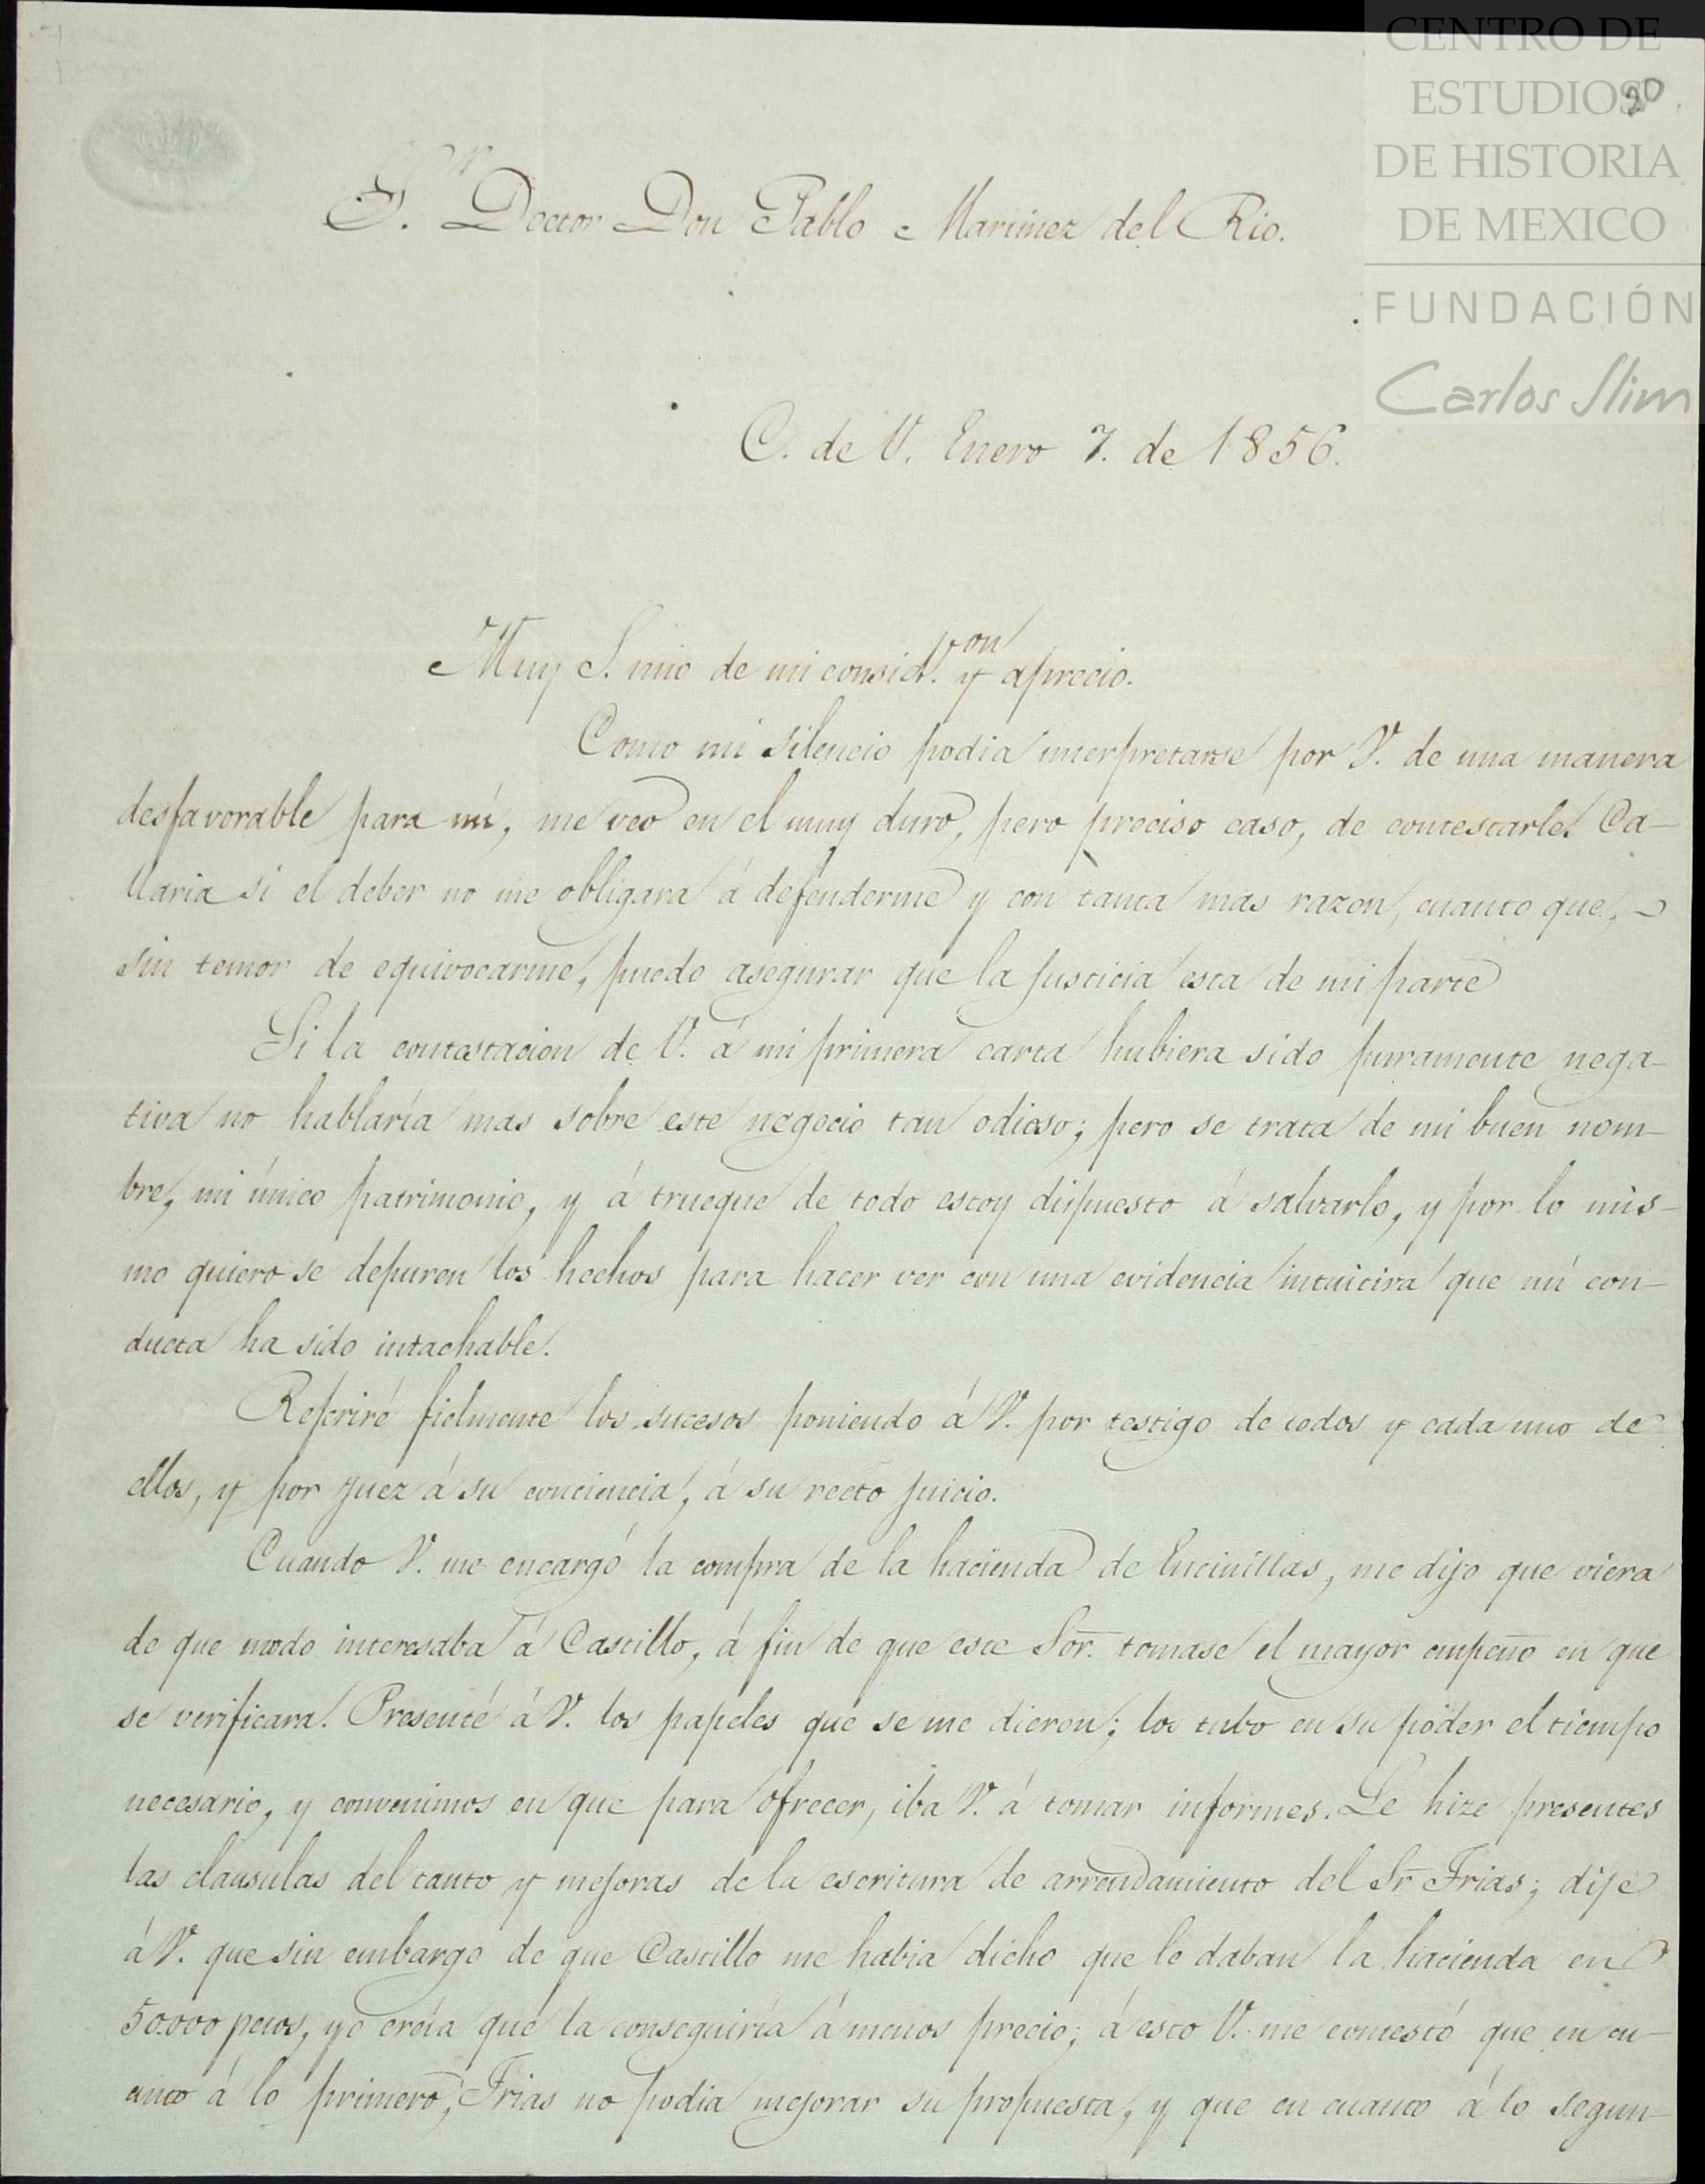 CENTRO DE
ESTUDIOS
DE HISTORIA
DE MEXICO
FUNDACIÓN
Carlos Slim
20
S.r Doctor Don Pablo Martinez del Rio.
C. de V. Enero 7. de 1856.
Muy S. mio de mi consid.on y aprecio.
Como mi silencio podia interpretarse por V. de una manera
desfavorable para mí, me veo en el muy duro, pero preciso caso, de contestarle. Ca-
llaria si el deber no me obligara á defenderme y con tanta mas razon, cuanto que,
sin temor de equivocarme, puedo asegurar que la justicia esta de mi parte
Si la contestacion de V. á mi primera carta hubiera sido puramente nega-
tiva no hablaría mas sobre este negocio tan odioso; pero se trata de mi buen nom-
bre, mi único patrimonio, y á trueque de todo estoy dispuesto á salvarlo, y por lo mis-
mo quiero se depuren los hechos para hacer ver con una evidencia intuitiva que mi con-
ducta ha sido intachable.
Referiré fielmente los sucesos poniendo á V. por testigo de todos y cada uno de
ellos, y por juez á su conciencia, á su recto juicio.
Cuando V. me encargó la compra de la hacienda de Encinillas, me dijo que viera
de que modo interesaba á Castillo, á fin de que este Sor. tomase el mayor empeño en que
se verificara. Presenté á V. los papeles que se me dieron; los tubo en su poder el tiempo
necesario, y convenimos en que para ofrecer, iba V. á tomar informes. Le hize presentes
las clausulas del tanto y mejoras de la escritura de arrendamiento del Sr Frias; dije
á V. que sin embargo de que Castillo me habia dicho que le daban la hacienda en
50.000 pesos, yo creía que la conseguiría á menos precio; á esto V. me contestó que en cu-
anto á lo primero, Frias no podia mejorar su propuesta, y que en cuanto á lo segun-